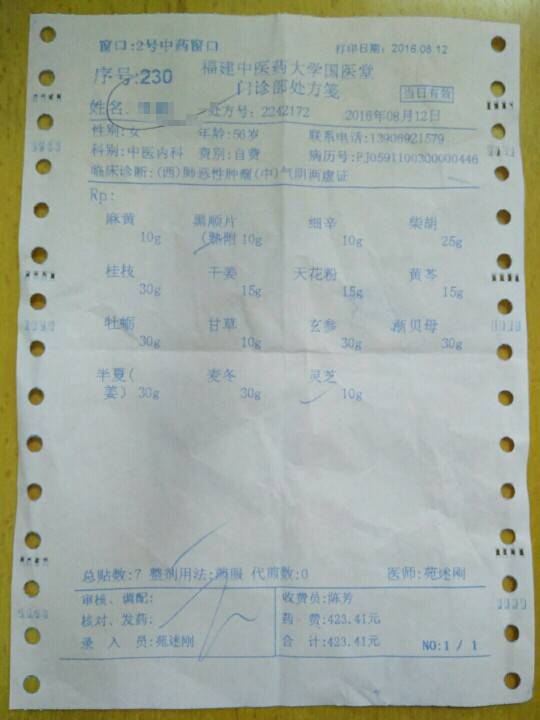 窗口:2号中药窗口
打印日期: 2016.08.12
序号:230
福建中医药大学国医堂
门诊部处方笺
当日有效
姓名:
处方号: 2242172
2016年08月12日
性别:女 年龄:56岁 联系电话:13906921579
科别:中医内科 费别:自费 病历号:PJ0591100300000446
临床诊断:(西)肺恶性肿瘤(中)气阴两虚证
Rp:
麻黄 黑顺片 细辛 柴胡
10g (熟附 10g 10g 25g
桂枝 干姜 天花粉 黄芩
30g 15g 15g 15g
牡蛎 甘草 玄参 浙贝母
30g 10g 30g 30g
半夏( 麦冬 灵芝
姜) 30g 30g 10g
总贴数:7 整剂用法:煎服 代煎数:0 医师:苑述刚
审核、调配: 收费员:陈芳
核对、发药: 药 费:423.41元
录 入 员:苑述刚 合 计:423.41元 NO:1 / 1